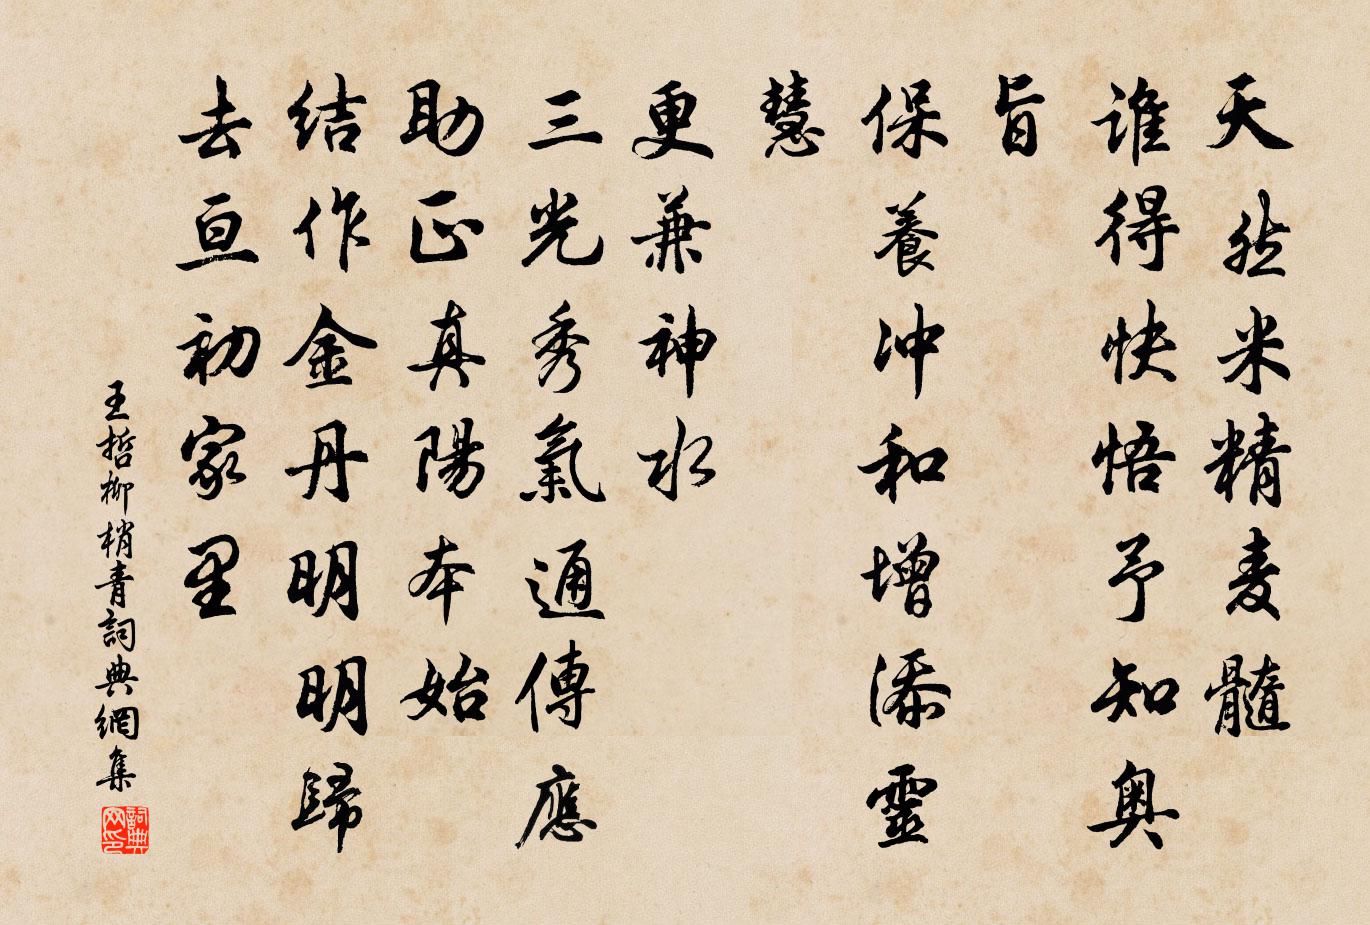 天然米精麦髓
谁得快悟予知奥
旨
保養冲和增添靈
慧
更兼神水
三光秀氣通傳應
助正真陽本始
结作金丹明明歸
去亘初家里
王哲柳梢青詞典網集
詞典网印